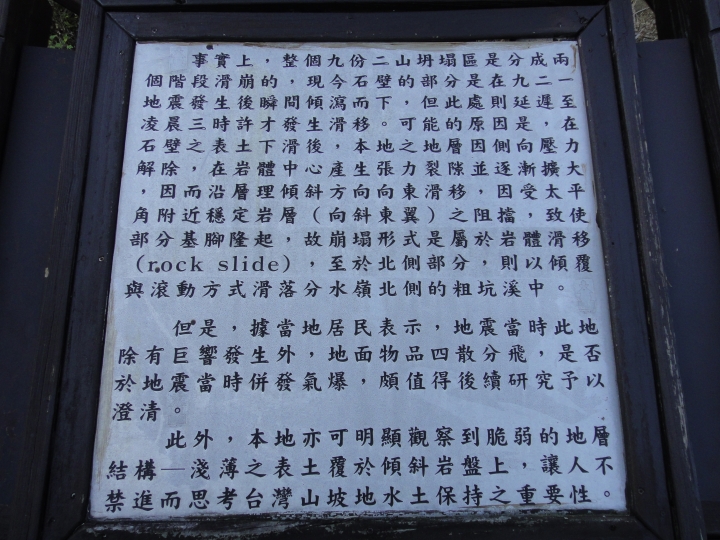 事實上，整個九份二山坍塌區是分成兩
個階段滑崩的，現今石壁的部分是在九二一
地震發生後瞬間傾瀉而下，但此處則延遲至
凌晨三時許才發生滑移。可能的原因是，在
石壁之表土下滑後，本地之地層因側向壓力
解除，在岩體中心產生張力裂隙並逐漸擴大
，因而沿層理傾斜方向向東滑移，因受太平
角附近穩定岩層（向斜東翼）之阻擋，致使
部分基腳隆起，故崩塌形式是屬於岩體滑移
（rock slide），至於北側部分，則以傾覆
與滾動方式滑落分水嶺北側的粗坑溪中。
但是，據當地居民表示，地震當時此地
除有巨響發生外，地面物品四散分飛，是否
於地震當時併發氣爆，頗值得後續研究予以
澄清。
此外，本地亦可明顯觀察到脆弱的地層
結構—淺薄之表土覆於傾斜岩盤上，讓人不
禁進而思考台灣山坡地水土保持之重要性。